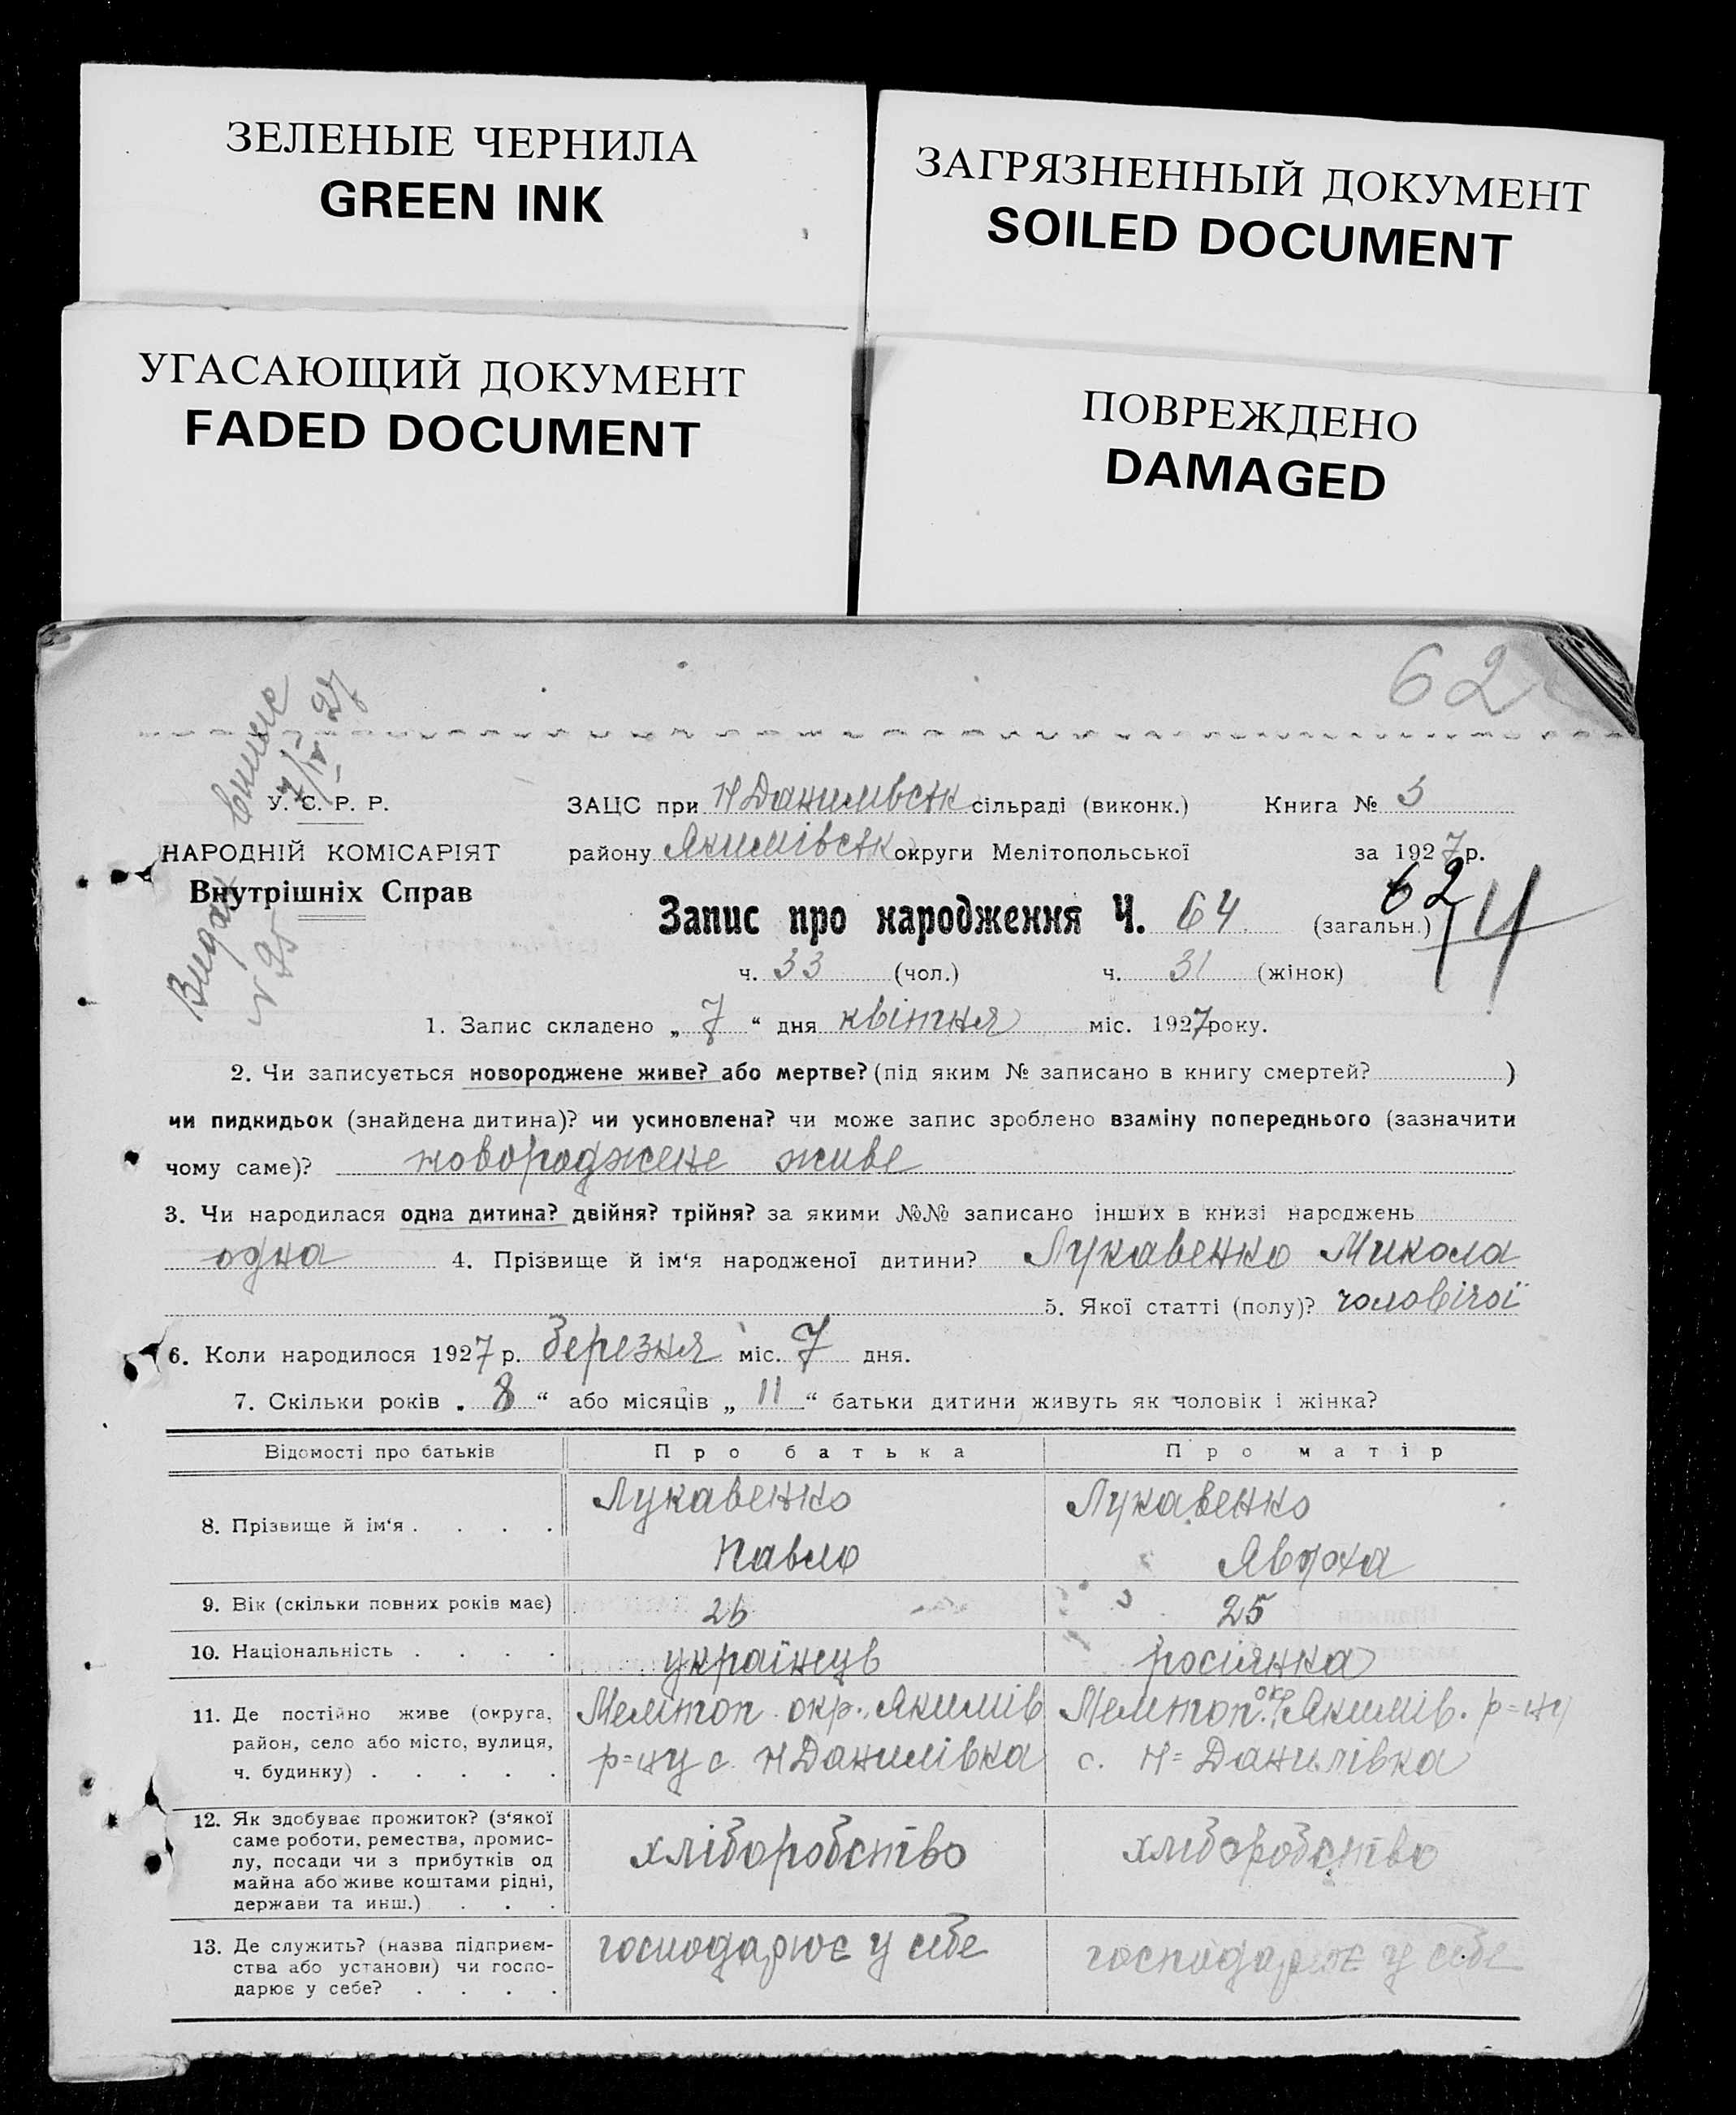 ЗЕЛЕНЫЕ ЧЕРНИЛА
GREEN INK
ЗАГРЯЗНЕННЫЙ ДОКУМЕНТ
SOILED DOCUMENT
УГАСАЮЩИЙ ДОКУМЕНТ
FADED DOCUMENT
ПОВРЕЖДЕНО
DAMAGED
62
Видан виписс
7/IV 27
№ 95
У. С. Р. Р.
НАРОДНІЙ КОМІСАРІЯТ
Внутрішніх Справ
ЗАЦС при Н Данилівськ сільраді (виконк.) Книга № 3
району Якимівськ округи Мелітопольської за 1927 р.
62
Запис про народження Ч. 64 (загальн.)
ч. 33 (чол.) ч. 31 (жінок)
1. Запис складено „ 7 “ дня квітня міс. 1927 року.
2. Чи записується новороджене живе? або мертве? (під яким № записано в книгу смертей? )
чи пидкидьок (знайдена дитина)? чи усиновлена? чи може запис зроблено взаміну попереднього (зазначити
чому саме)? новороджене живе
3. Чи народилася одна дитина? двійня? трійня? за якими №№ записано інших в книзі народжень
одна 4. Прізвище й ім‘я народженої дитини? Лукавенко Микола
5. Якої статті (полу)? чоловічої
6. Коли народилося 1927 р. березня міс. 7 дня.
7. Скільки років „ 8 “ або місяців „ 11 “ батьки дитини живуть як чоловік і жінка?
Відомості про батьків Про батька Про матір
8. Прізвище й ім‘я . . . . Лукавенко Павло Лукавенко Явдоха
9. Вік (скільки повних років має) 26 25
10. Національність . . . . українець росіянка
11. Де постійно живе (округа, Мелітоп. окр., Якимів Мелітоп. окр Якимів. р=ну
район, село або місто, вулиця, р=ну с. Н Данилівка с. Н=Данилівка
ч. будинку) . . . . .
12. Як здобуває прожиток? (з‘якої
саме роботи, ремества, промис-
лу, посади чи з прибутків од хліборобство хліборобство
майна або живе коштами рідні,
держави та инш.) . . .
13. Де служить? (назва підприєм- господарює у себе господарює у себе
ства або установи) чи госпо-
дарює у себе? . . . .